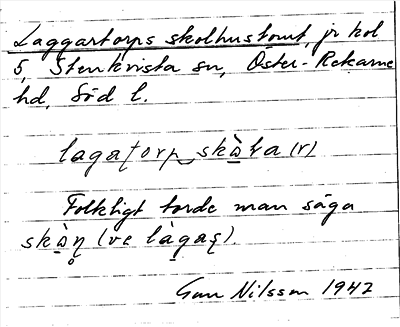 Laggartorps skolhustomt, jr kol
5, Stenkvista sn, Öster-Rekarne
hd, Söd l.
lagaʈorp skὼla (r)
Folkligt torde man säga
(ve làgaş).
Nilsson 1942